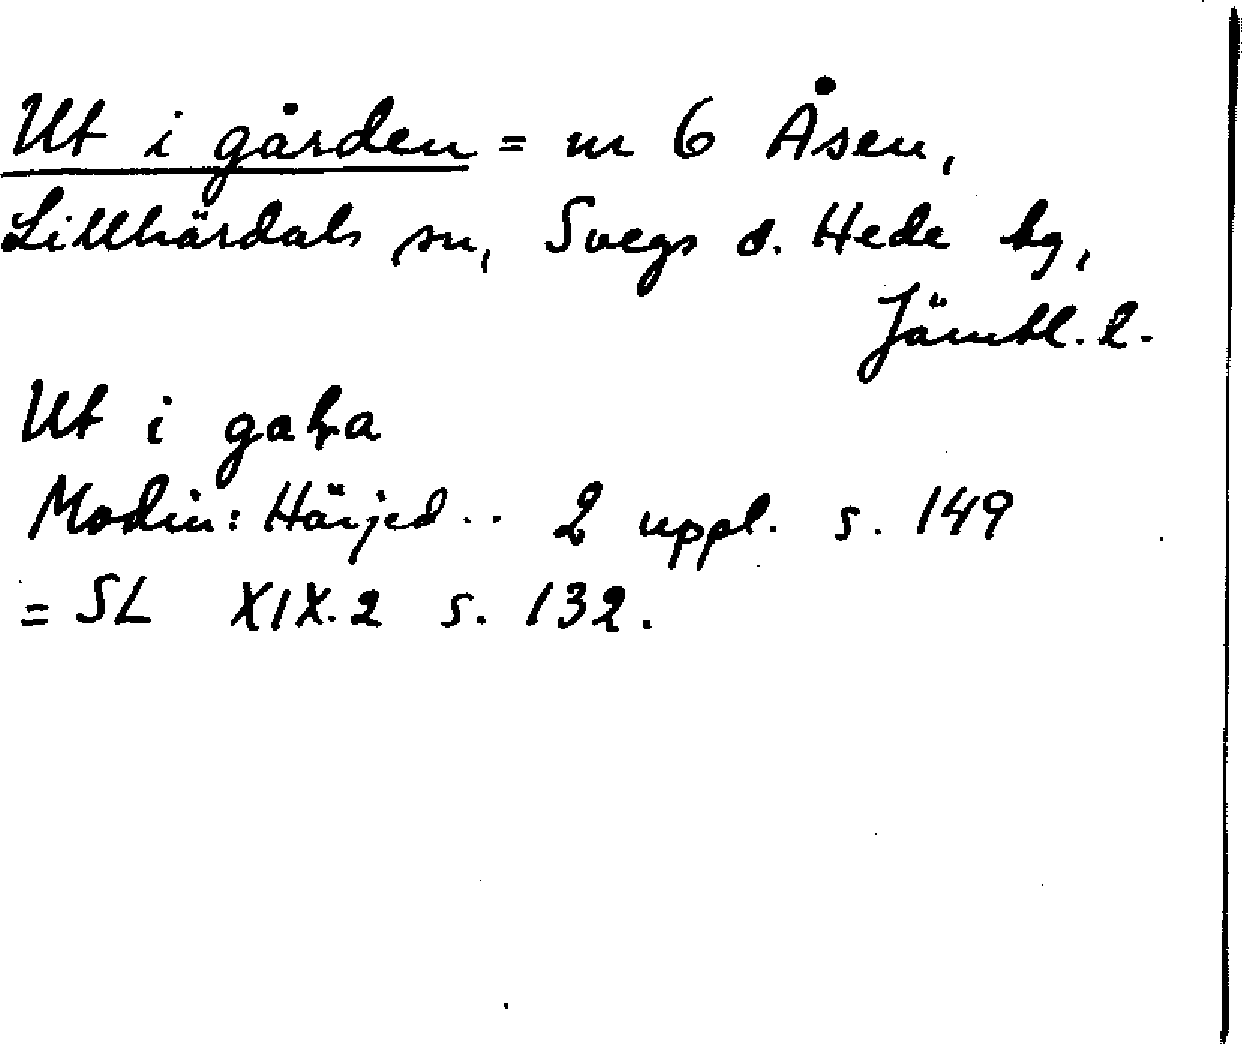 Ut i gården = nr 6 Åsen,
Lillhärdals sn, Svegs o. Hede tg,
Jämtl. l.
Ut i
Modin: Härjed.. 2 uppl. s. 149
= SL XIX.2 s. 132.